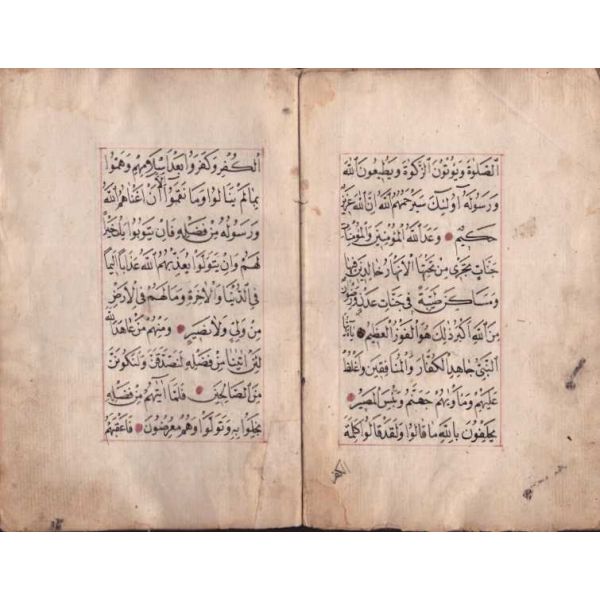 الصَّلوٰةَ وَيُؤتُونَ الزَّكوٰةَ وَيُطيعُونَ اللهَ
وَرَسُولَهُ أُولئِكَ سَيَرحَمُهُمُ اللهُ اِنَّ اللهَ عَزيزٌ
حَكيمٌ وَعَدَ اللهُ المُؤمِنينَ وَالمُؤمِنَاتِ
جَنَّاتٍ تَجرى مِن تَحتِهَا الاَنهَارُ خَالِدينَ فيهَا
وَمَسَاكِنَ طَيِّبَةً فى جَنَّاتِ عَدنٍ وَرِضوَانٌ
مِنَ اللهِ اَكبَرُ ذلِكَ هُوَ الفَوزُ العَظيمُ يَا اَيُّهَا
النَّبِىُّ جَاهِدِ الكُفَّارَ وَالمُنَافِقينَ وَاغلُظ
عَلَيهِم وَمَأوٰيهُم جَهَنَّمُ وَبِئسَ المَصيرُ
يَحلِفُونَ بِاللهِ مَا قَالُوا وَلَقَد قَالُوا كَلِمَةَ
الكفر
الكُفرِ وَكَفَرُوا بَعدَ اِسلَامِهِم وَهَمُّوا
بِمَا لَم يَنَالُوا وَمَا نَقَمُوا اِلَّا اَن اَغنَاهُمُ اللهُ
وَرَسُولُهُ مِن فَضلِهِ فَاِن يَتُوبُوا يَكُ خَيرًا
لَهُم وَاِن يَتَوَلَّوا يُعَذِّبهُمُ اللهُ عَذَابًا اَليمًا
فِى الدُّنيَا وَالاٰخِرَةِ وَمَا لَهُم فِى الاَرضِ
مِن وَلِىٍّ وَلَا نَصيرٍ وَمِنهُم مَن عَاهَدَ اللهَ
لَئِن اٰتٰينَا مِن فَضلِهِ لَنَصَّدَّقَنَّ وَلَنَكُونَنَّ
مِنَ الصَّالِحينَ فَلَمَّا اٰتٰيهُم مِن فَضلِهِ
بَخِلُوا بِهِ وَتَوَلَّوا وَهُم مُعرِضُونَ فَاَعقَبَهُم